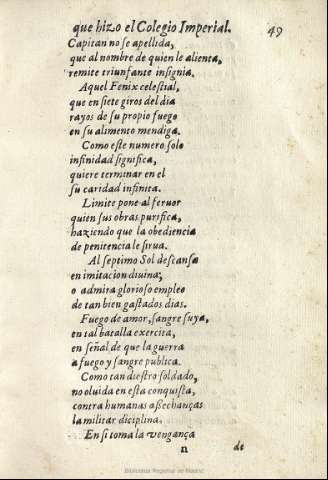 que hizo el Colegio Imperial. 49
Capitan no se apellida,
que al nombre de quien le alienta,
remite triunfante insignia.
Aquel Fenix celestial,
que en siete giros del dia
rayos de su propio fuego
en su alimento mendiga.
Como este numero solo
infinidad significa,
quiere terminar en el
su caridad infinita.
Limite pone al feruor
quien sus obras purifica,
haziendo que la obediencia
de penitencia le sirua.
Al septimo Sol descansa
en imitacion diuina;
o admira glorioso empleo
de tan bien gastados dias.
Fuego de amor, sangre suya,
en tal batalla exercita,
en señal de que la guerra
a fuego y sangre publica.
Como tan diestro soldado,
no oluida en esta conquista,
contra humanas assechanças
la militar diciplina.
En si toma la vengança
n de
Biblioteca Regional de Madrid